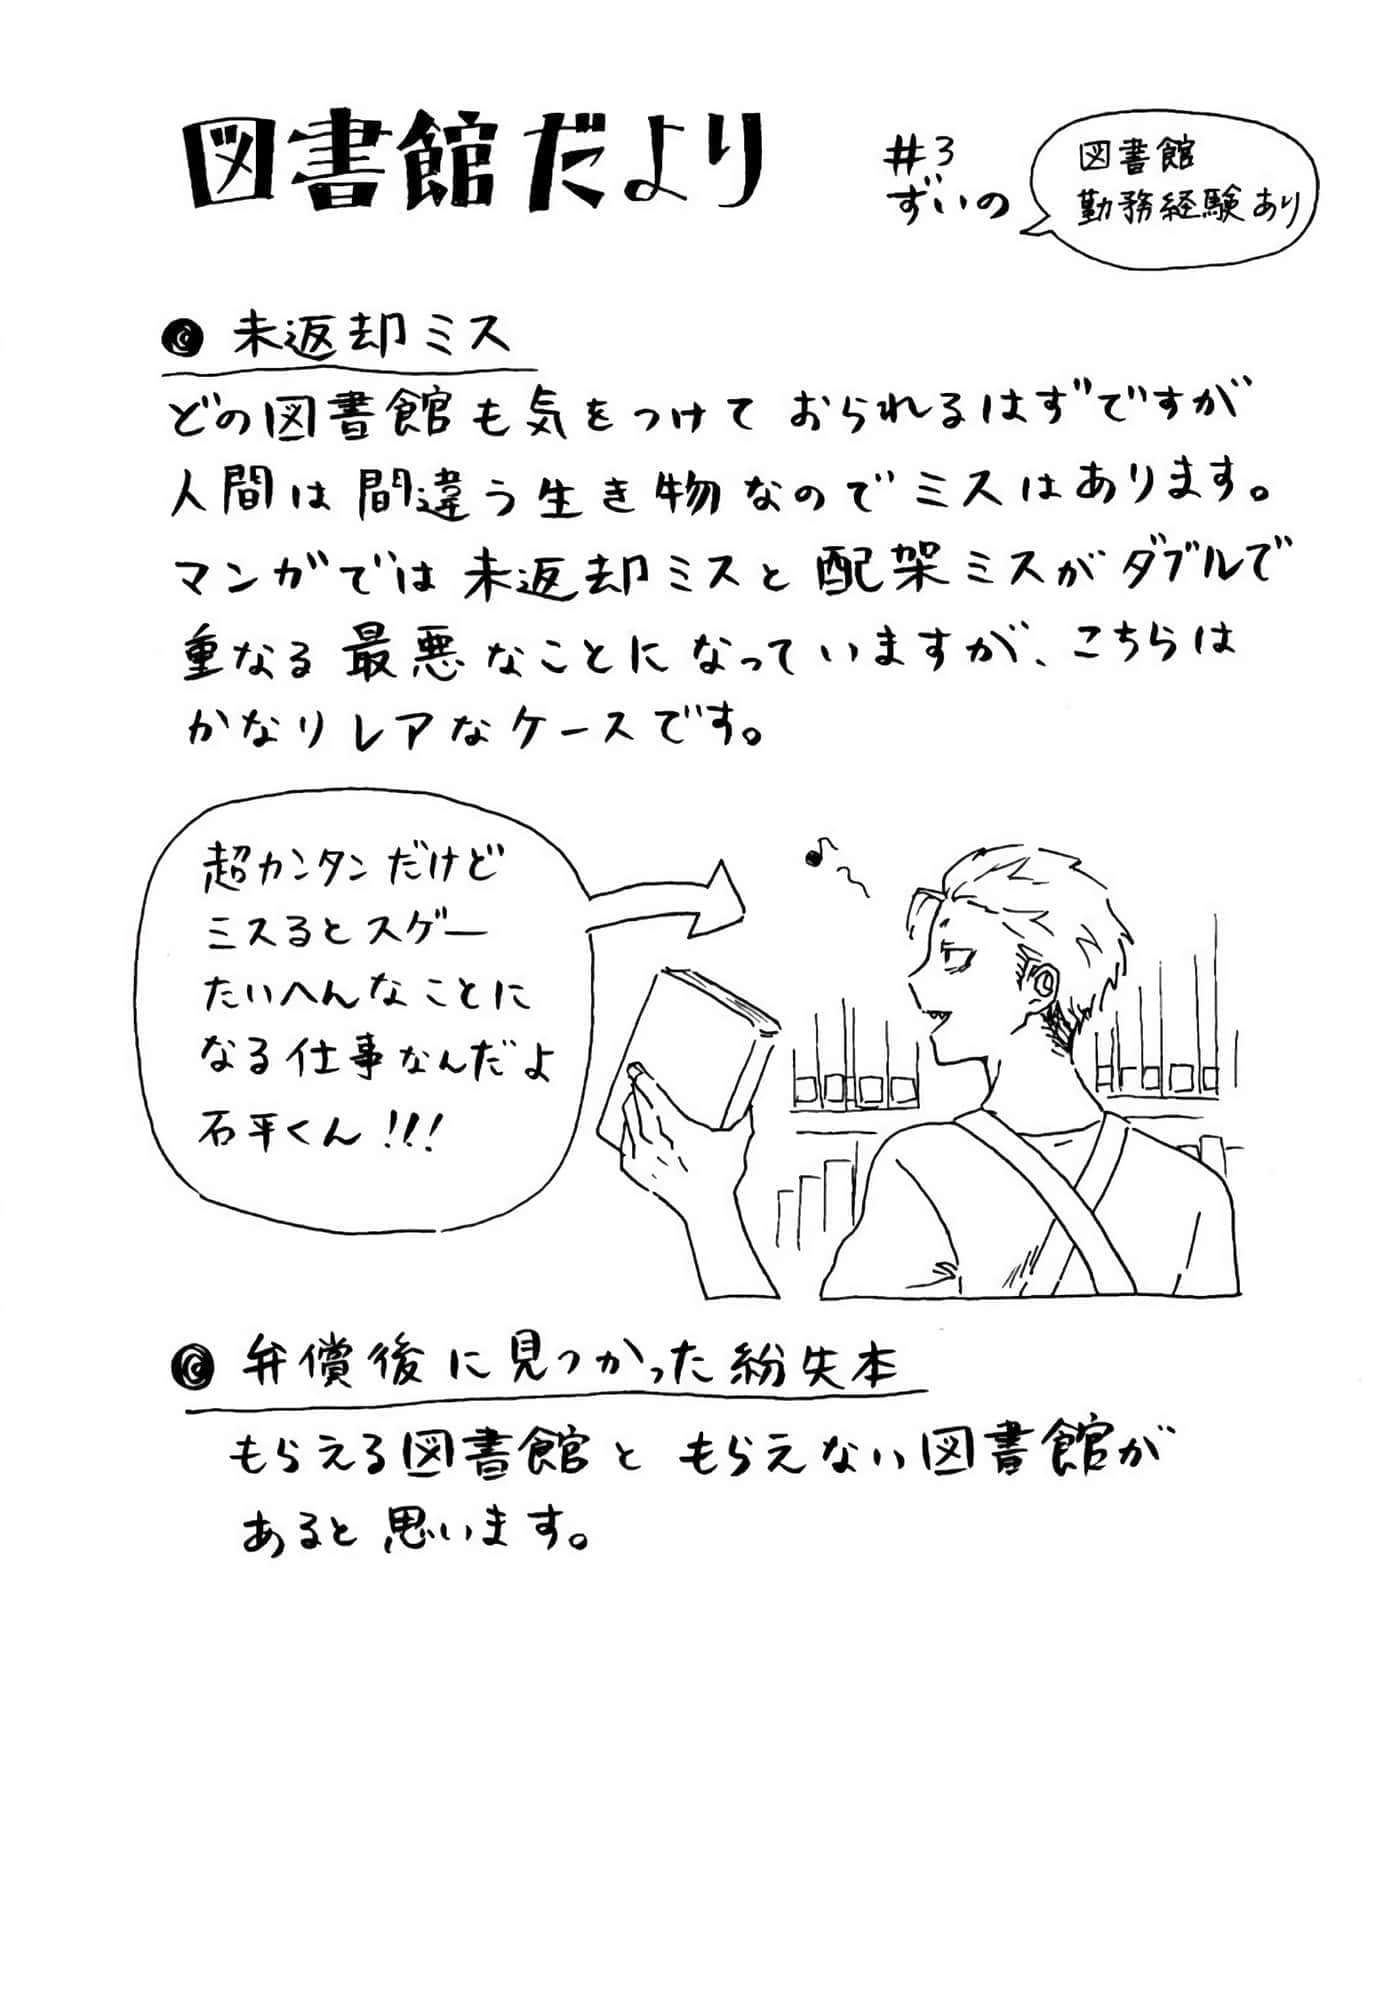 図書館だより
#3
ずいの
図書館
勤務経験あり
未返却ミス
どの図書館も気をつけておられるはずですが
人間は間違う生き物なのでミスはあります。
マンガでは未返却ミスと配架ミスがダブルで
重なる最悪なことになっていますが、こちらは
かなりレアなケースです。
超カンタンだけど
ミスるとスゲー
たいへんなことに
なる仕事なんだよ
石平くん!!!
弁償後に見つかった紛失本
もらえる図書館ともらえない図書館が
あると思います。